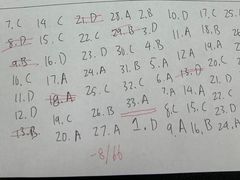 7.C 14.C 21.D 28.A 2.B 10.D 17.C 25.
8.D 15.C 22.C 29.B 3.D 11.A 18.B
9.B 16.D 23.D 30.C 4.B 12.A 19.A
10.C 17.A 24.A 31.B 5.A 13.D 20.C
11.D 18.A 25.C 32.C 6.A 14.A 22.C
12.D 19.C 26.A 33.A 7.A 8.C 15.C 23.D
13.B 20.A 27.A 1.D 9.A 16.B 24.A
-8/66